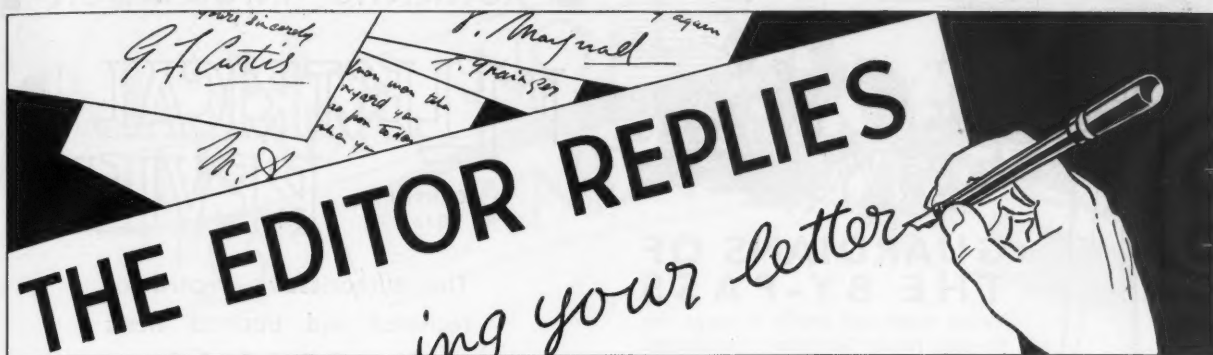 yours sincerely
G. F. Curtis
again
V. Maynall
T. Grainger
yard you
M. S
THE EDITOR REPLIES
ing your letter